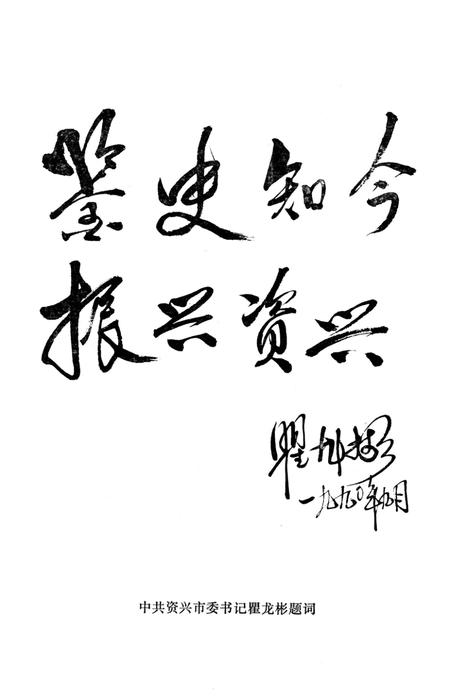 鉴史知今
振兴资兴
瞿龙彬
一九九〇年九月
中共资兴市委书记瞿龙彬题词